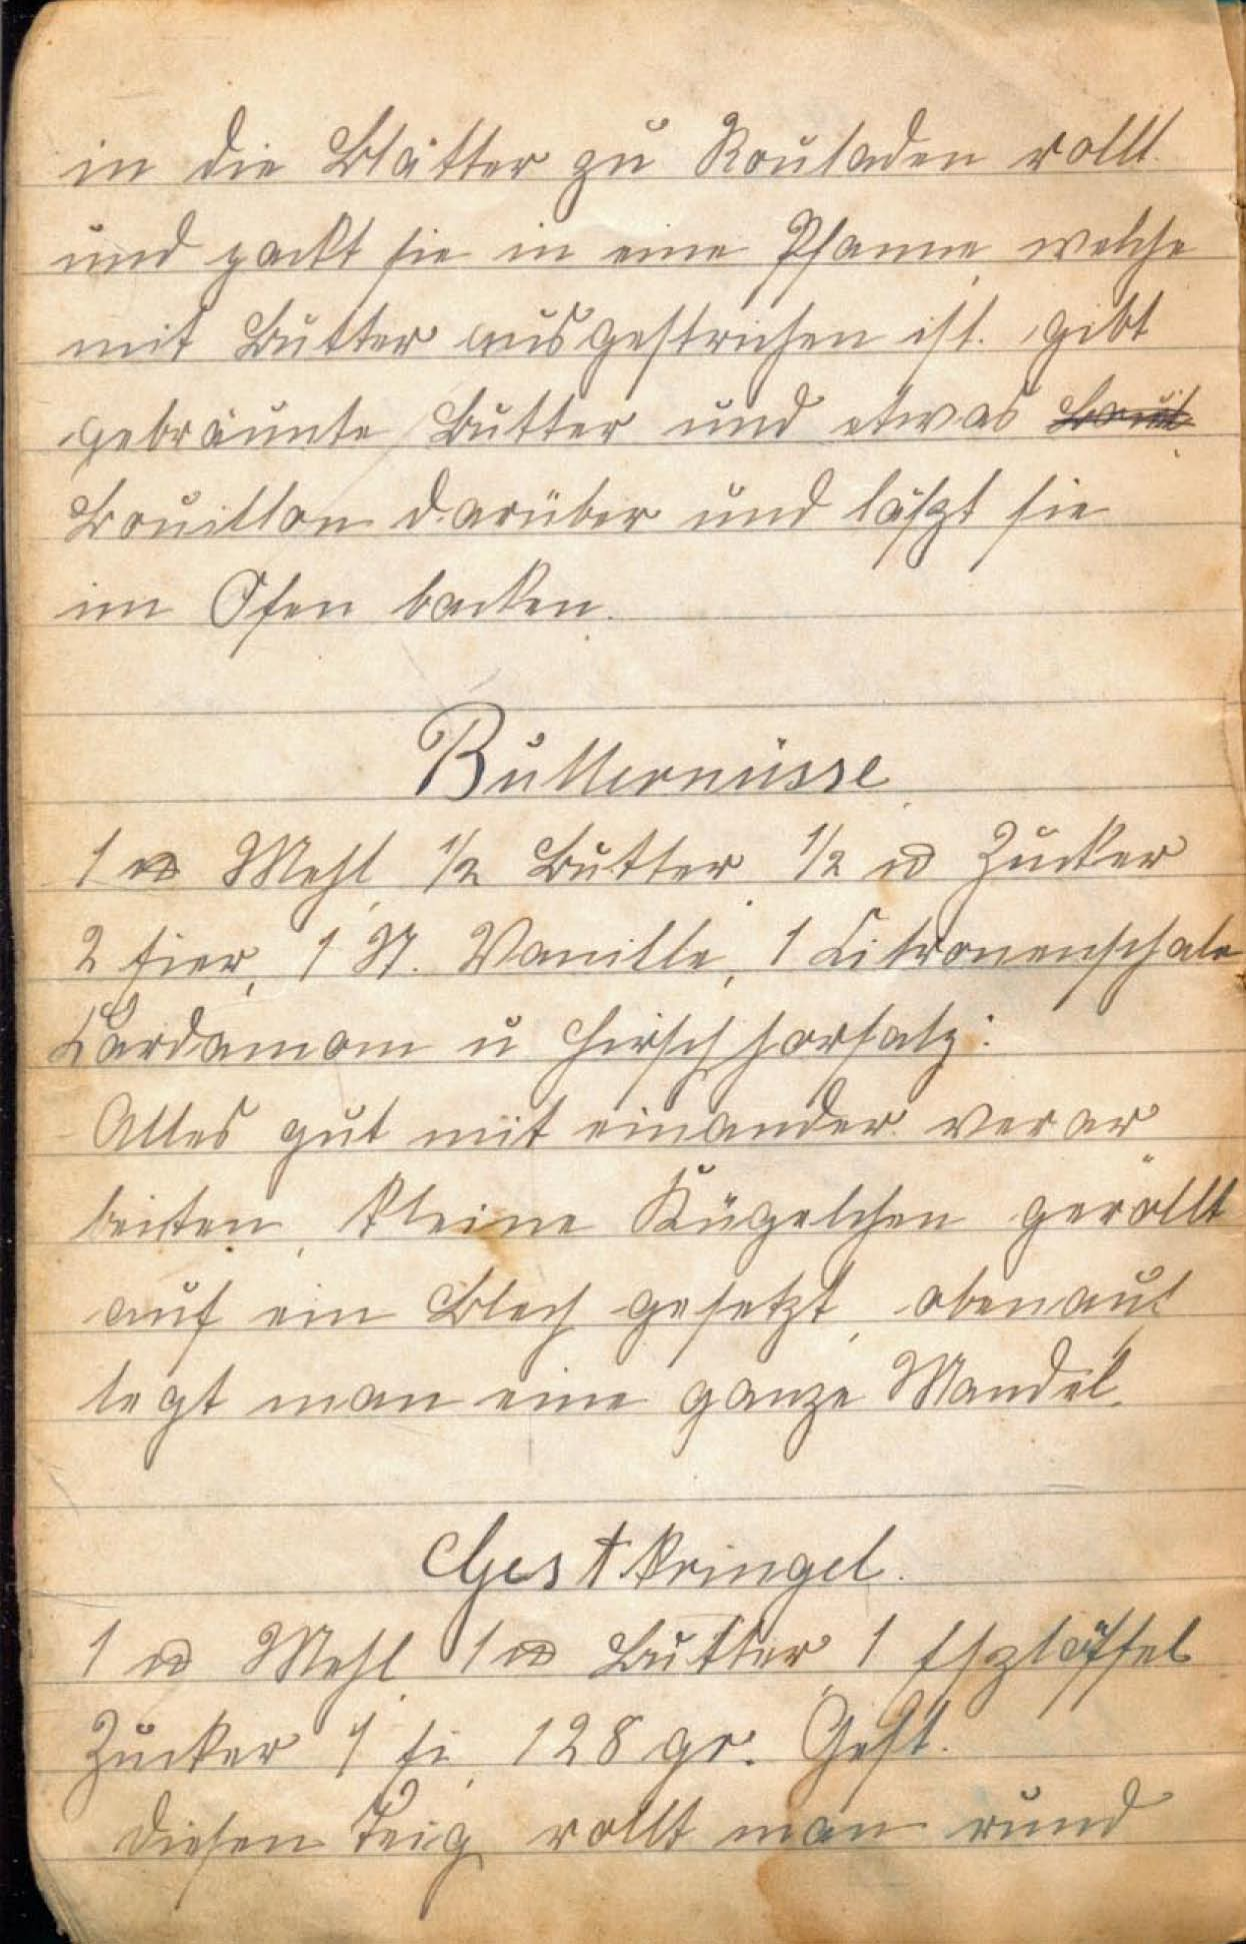 in die Blätter zu Rouladen rollt
und packt sie in eine Pfanne, welche
mit Butter ausgestrichen ist. gibt
gebräunte Butter und etwas
Bouillon darüber und läßt sie
im Ofen backen.
Butternüsse
1 ℔ Mehl, ½ Butter, ½ ℔ Zucker
2 Eier, 1 St. Vanille, 1 Citronenschale
Cardamom u Hirschhorsalz:
Alles gut mit einander verar
beiten, kleine Kügelchen geröllt
auf ein Blech gesetzt, obenauf
legt man eine ganze Mandel.
Gestkringel.
1 ℔ Mehl 1 ℔ Butter, 1 Eßlöffel
Zucker 1 Ei, 128 gr. Gest.
Diesen Teig rollt man rund